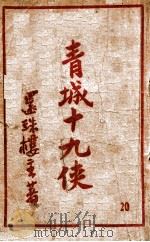 青城十九俠
還珠樓主著
20